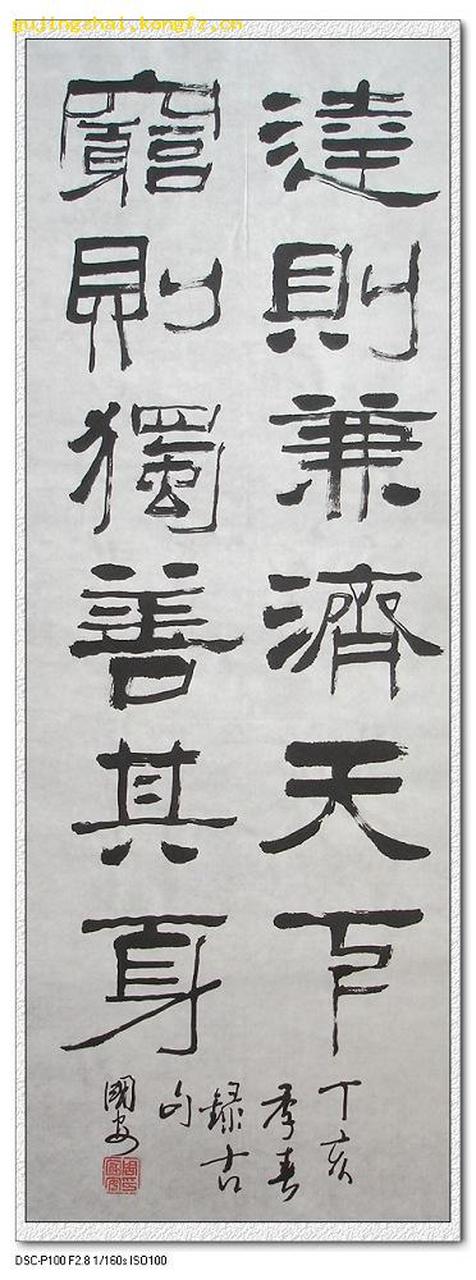 gujingzhai.kongfz.cn
達則兼濟天下
窮則獨善其身
丁亥
季春
録古
句
國安
DSC-P100 F2.8 1/160s ISO100